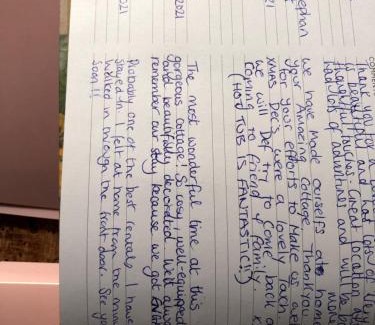 COMMENTS
thank you for a
is beautiful and
thoughtful touches, great location
had lots of adventures and will be b
ephan
We have made ourselves at home
your Amazing cottage. Thankyou
for your efforts to make us
21
Xmas Dec's were a lovely touch
we will Def try to come back
coming to friend & family. x
(HOT TUB IS FANTASTIC!!)
2021
The most wonderful time at this
gorgeous cottage. So cosy, well equipped
and beautifully decorated. We'll always
remember our stay because we got
021
Probably one of the best rentals I have
stayed in. I felt at home from the
walked in through the front door. See yo
soon!!